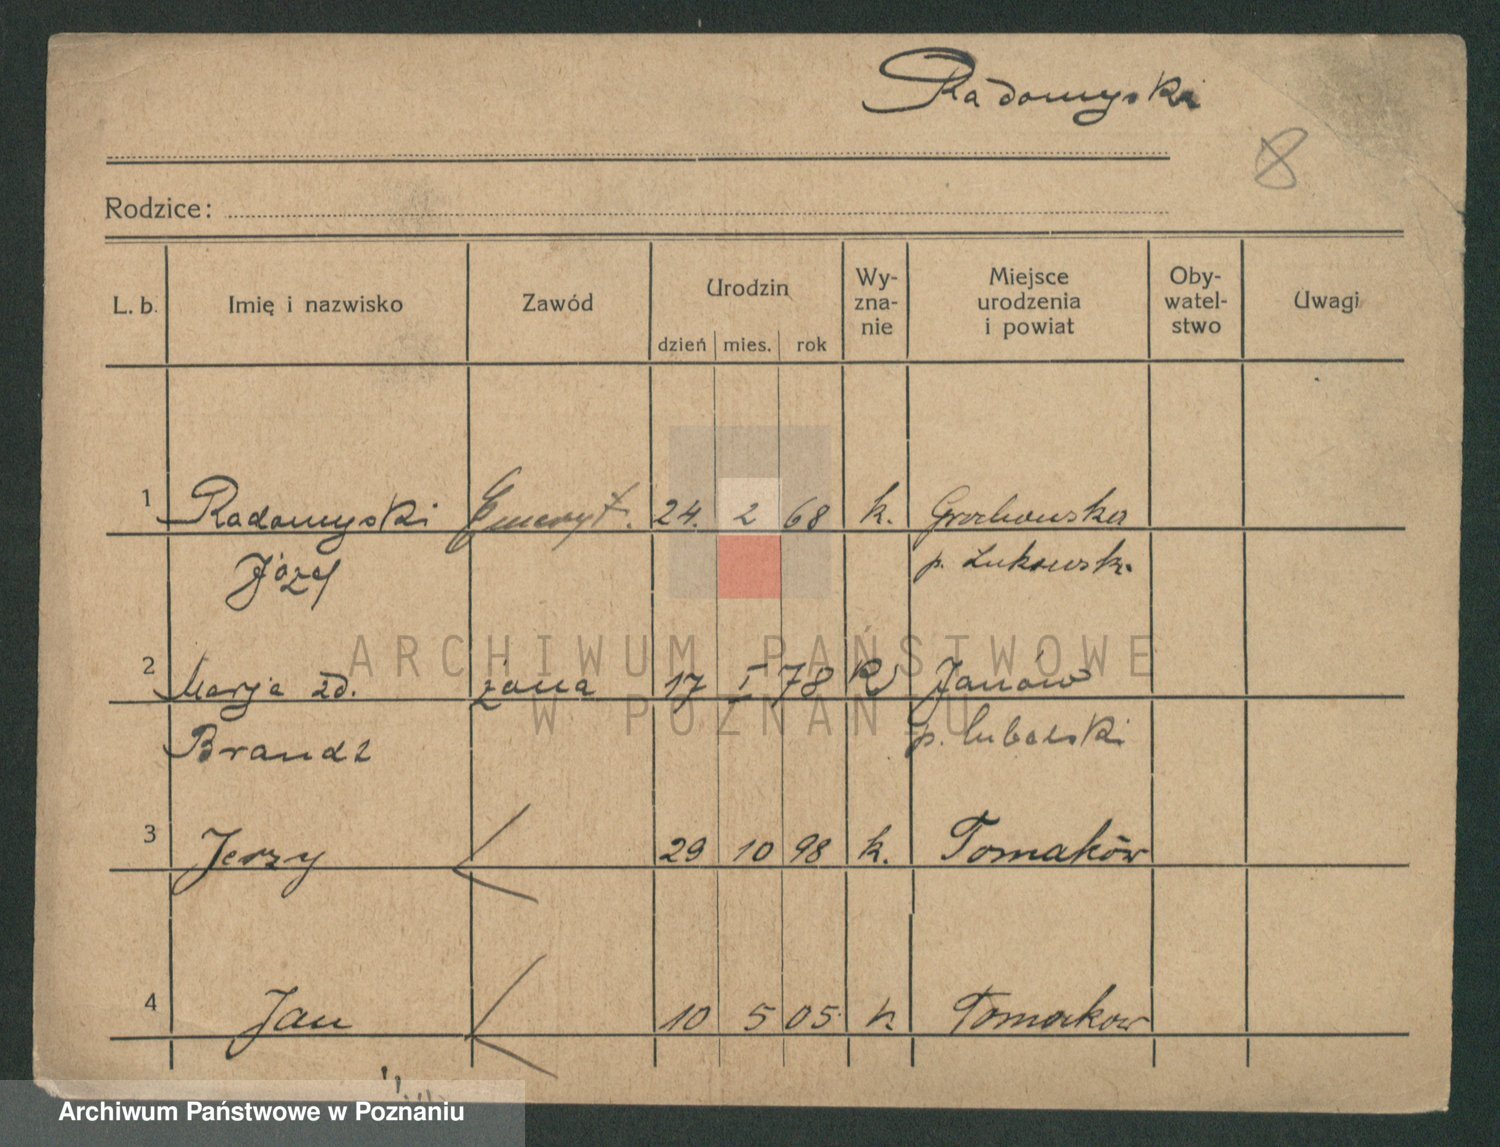 Radomyski
8
Rodzice:
L. b. Imię i nazwisko Zawód Urodzin Wy-zna-nie Miejsce urodzenia i powiat Oby-watel-stwo Uwagi
dzień mies. rok
1 Radomyski Emeryt. 24. 2 68 k. Grochowska
Józef p. Łukowsk.
2 Marja zd. żona 17 I 78 Janów
Brandt p. lubelski
3 Jerzy 29 10 98 k. Tomaków
4 Jan 10 5 05 k Tomakow
ARCHIWUM PAŃSTWOWE
W POZNANIU
Archiwum Państwowe w Poznaniu